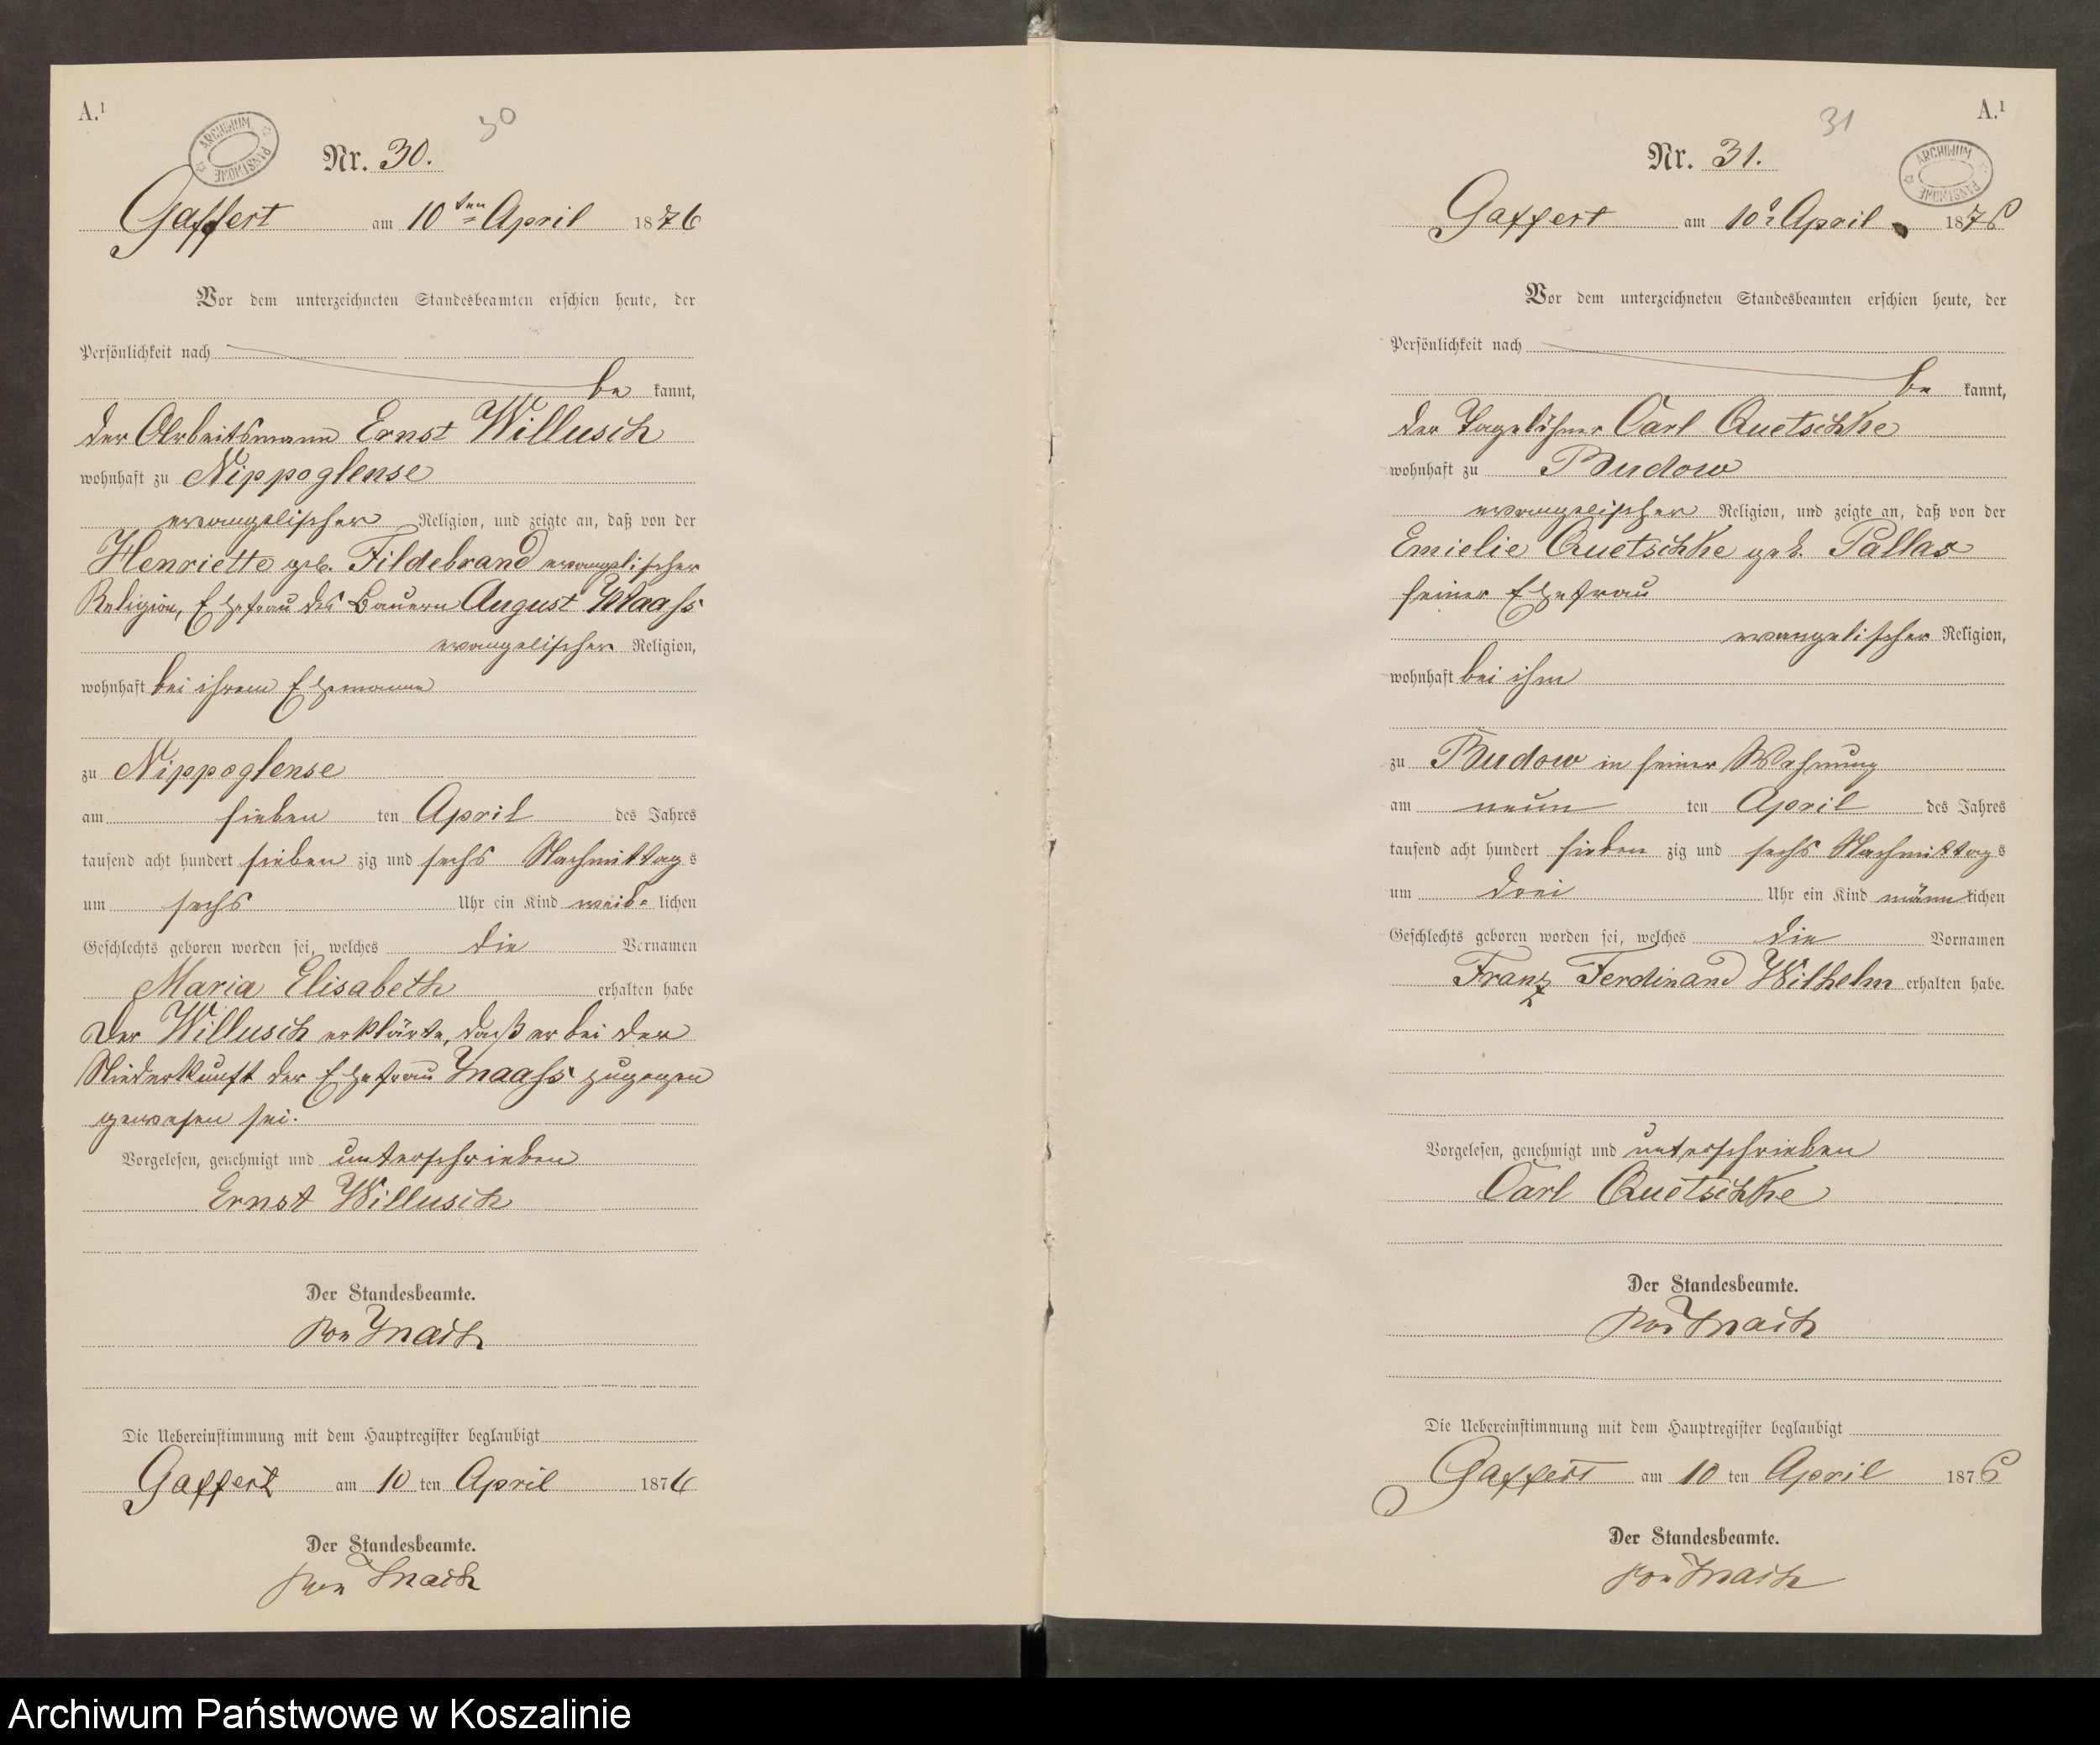 A.¹
ARCHIWUM PAŃSTWOWE
30
Nr. 30.
Gaffert am 10ten April 1876
Vor dem unterzeichneten Standesbeamten erschien heute, der
Persönlichkeit nach
be kannt,
der Arbeitsmann Ernst Willusch
wohnhaft zu Nippoglense
evangelischer Religion, und zeigte an, daß von der
Henriette geb. Fildebrand evangelischer
Religion, Ehefrau des Bauern August Maass
evangelischer Religion,
wohnhaft bei ihrem Ehemanne
zu Nippoglense
am sieben ten April des Jahres
tausend acht hundert sieben zig und sechs Nachmittags
um sechs Uhr ein Kind weib= lichen
Geschlechts geboren worden sei, welches die Vornamen
Maria Elisabeth erhalten habe
Der Willusch erklärte, daß er bei der
Niederkunft der Ehefrau Maass zugegen
gewesen sei.
Vorgelesen, genehmigt und unterschrieben
Ernst Willusch
Der Standesbeamte.
von
Die Uebereinstimmung mit dem Hauptregister beglaubigt
Gaffert am 10 ten April 1876
Der Standesbeamte.
von
A.¹
ARCHIWUM PAŃSTWOWE
31
Nr. 31.
Gaffert am 10t April 1876
Vor dem unterzeichneten Standesbeamten erschien heute, der
Persönlichkeit nach
be kannt,
der Tagelöhner Carl Quetschke
wohnhaft zu Budow
evangelischer Religion, und zeigte an, daß von der
Emielie Quetschke geb. Pallas
seiner Ehefrau
evangelischer Religion,
wohnhaft bei ihm
zu Budow in seiner Wohnung
am neun ten April des Jahres
tausend acht hundert sieben zig und sechs Nachmittags
um drei Uhr ein Kind männlichen
Geschlechts geboren worden sei, welches die Vornamen
Franz Ferdinand Wilhelm erhalten habe.
Vorgelesen, genehmigt und unterschrieben
Carl Quetschke
Der Standesbeamte.
von
Die Uebereinstimmung mit dem Hauptregister beglaubigt
Gaffert am 10 ten April 1876
Der Standesbeamte.
von
Archiwum Państwowe w Koszalinie